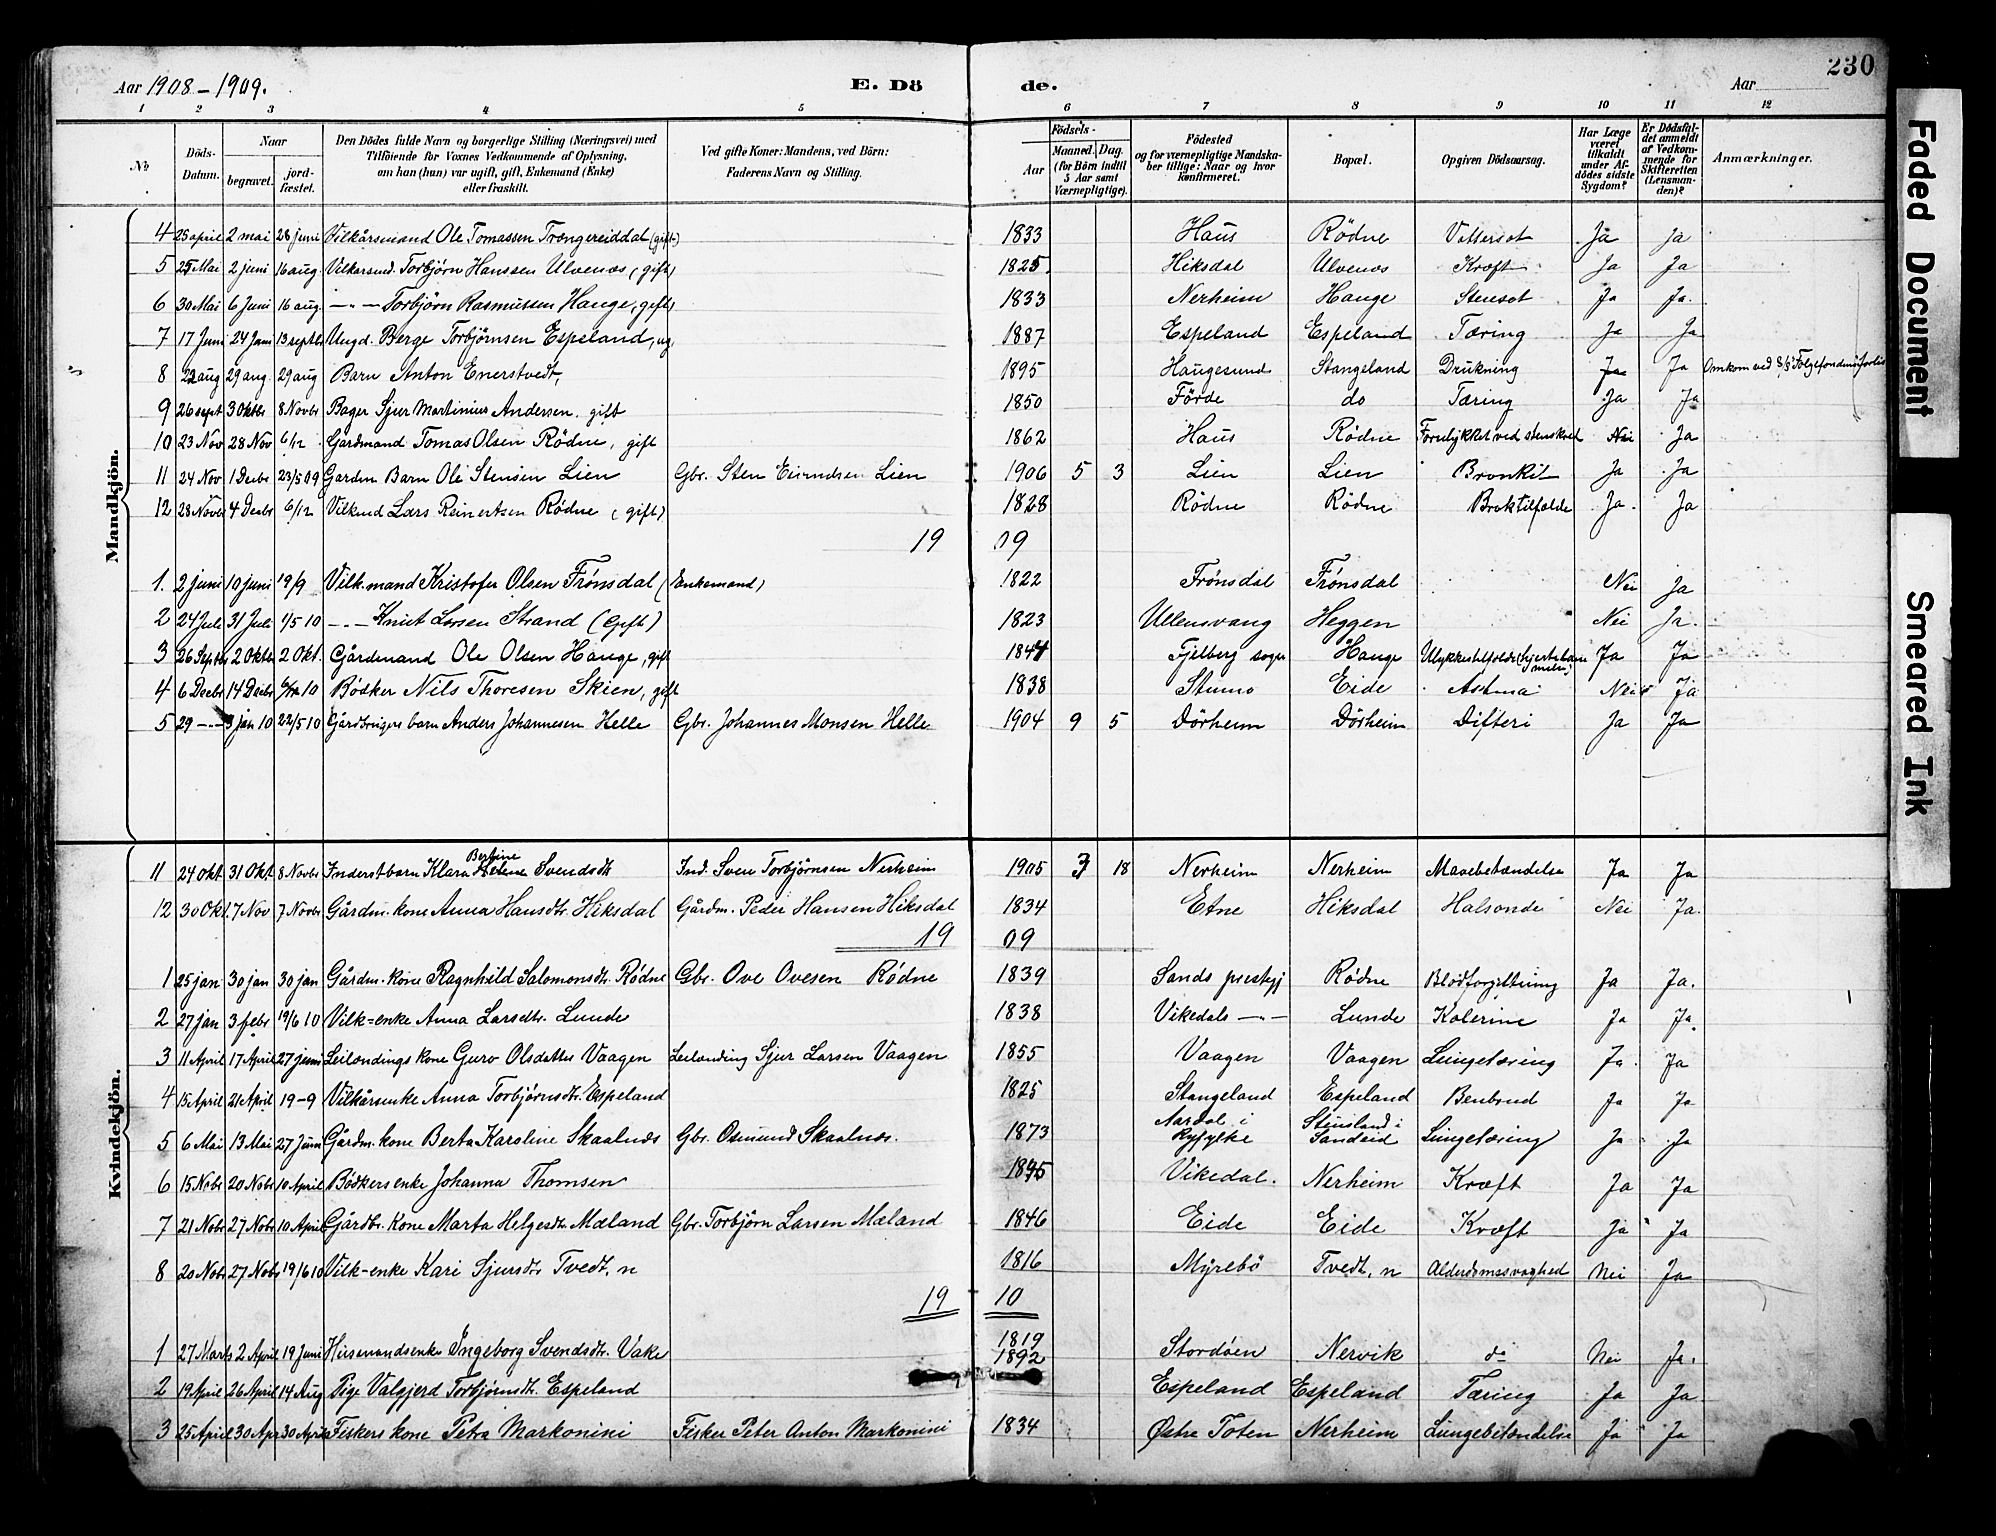 Aar 1908-1909. E. Dö de. Aar 230
1 2 3 4 5 6 7 8 9 10 11 12
No Döds-Datum. Naar begravet. jordfæstet. Den Dödes fulde Navn og borgerlige Stilling (Næringsvei) med Tilföiende for Voxnes Vedkommende af Oplysning, om han (hun) var ugift, gift, Enkemand (Enke) eller fraskilt. Ved gifte Koner: Mandens, ved Börn: Faderens Navn og Stilling. Födsels- Aar Maaned. Dag. (for Börn indtil 5 Aar samt Værnepligtige). Födested og for værnepligtige Mandskaber tillige: Naar og hvor konfirmeret. Bopæl. Opgiven Dödsaarsag. Har Læge været tilkaldt under Afdödes sidste Sygdom? Er Dödsfaldet anmeldt af Vedkommende for Skifteretten (Lensmanden)? Anmærkninger.
Mandkjön.
4 25 april 2 mai 28 juni Vilkårsmand Ole Tomassen Trængereiddal (gift) 1833 Haus Rödne Vattersot Ja Ja
5 25 Mai 2 juni 16 aug. Vilkarsmd. Torbjörn Hanssen Ulvenes (gift) 1825 Hiksdal Ulvenos Kræft Ja Ja
6 30 Mai 6 Juni 16 aug. —"— Torbjörn Rasmussen Hauge, gift 1833 Nerheim Hauge Stensot Ja Ja.
7 17 Juni 24 Juni 13 septbr Ungd. Berge Torbjörnsen Espeland, ug. 1887 Espeland Espeland Tæring Ja Ja
8 22 aug 29 aug. 29 aug Barn Anton Enerstvedt, 1895 Haugesund Stangeland Drukning Ja Ja Omkom ved S/S Folgefondens forlis
9 26 sept 3 Oktbr 8 Novbr Bager Sjur Martinius Andersen. gift 1850 Förde do Tæring Ja Ja
10 23 Nov 28 Nov 6/12 Gardmand Tomas Olsen Rödne, gift 1862 Haus Rödne Forulykket ved stenskred Nei Ja
11 24 Nov 1 Decbr 23/5 09 Gardm Barn Ole Stensen Lien Gbr. Sten Eivindsen Lien 1906 5 3 Lien Lien Bronkit Ja Ja
12 28 Novbr 4 Decbr 6/12 Vilkmd Lars Reinertsen Rödne (gift) 1828 Rödne Rödne Broktilfælde Ja. Ja
19 09
1. 2 juni 10 juni 19/9 Vilk.mand Kristofer Olsen Frönsdal (Enkemand) 1822 Frönsdal Frönsdal Nei Ja
2 24 Juli 31 Juli 1/5 10 —"— Knut Larsen Strand (Gift) 1823 Ullensvang Heggen Nei Ja.
3 26 Septbr 2 Oktbr 2 Okt. Gårdmand Ole Olsen Hauge, gift 1844 Fjelberg sogn Hauge Ulykkestilfolde Ja Ja
4 6 Decbr 14 Decbr 10 Bödker Nils Thoresen Skien, gift 1838 Stumo Eide Astma Nei Ja
5 29 —"— 3 jan 10 22/5 10 Gårdbrugers barn Anders Johannesen Helle Gbr. Johannes Monsen Helle. 1904 9 5 Dörheim Dörheim Difteri Ja Ja
Kvindekjön.
11 24 Okt 31 Okt 8 Novbr Inderstbarn Klara Bertine Helene Svendsdtr Ind. Sven Torbjörnsen Nerheim 1905 3 18 Nerheim Nerheim Mavebetændelse Ja Ja
12 30 Okt. 7 Nov 7 Novbr Gårdm. kone Anna Hansdtr. Hiksdal Gårdm. Peder Hansen Hiksdal 1834 Etne Hiksdal Halsonde Nei Ja.
19 09
1 25 jan 30 jan 30 jan Gårdm. kone Ragnhild Salomonsdtr. Rödne Gbr. Ove Ovesen Rödne 1839 Sands prestgj Rödne Blodforgiftning Ja Ja.
2 27 jan 3 febr 19/6 10 Vilk-enke Anna Larsdtr. Lunde 1838 Vikedals —"— Lunde Kolerine Ja Ja.
3 11 April 17 April 27 juni Leilendings kone Guro Olsdatter Vaagen Leilending Sjur Larsen Vaagen 1855 Vaagen Vaagen Lungetæring Ja. Ja
4 15 April 21 April 19-9 Vilkårsenke Anna Torbjörnsdtr. Espeland 1825 Stangeland Espeland Benbrud Ja Ja
5 6 Mai 13 Mai 27 Juni Gårdm. kone Berta Karoline Skaalnæs Gbr. Osmund Skaalnæs. 1873 Aardal i Ryfylke Stensland i Sandeid Lungetæring Ja Ja
6 15 Nobr 20 Nobr 10 April Bödkersenke Johanna Thomsen Vikedal. Nerheim Kræft Ja Ja
7 21 Nobr 27 Nobr 10 April Gårdbr. Kone Marta Helgesdtr. Mæland Gbr. Torbjörn Larsen Mæland 1846 Eide Eide Kræft Ja Ja
8 20 Nobr 27 Nobr 19/6 10 Vilk-enke Kari Sjursdtr Tvedt, n 1816 Myrebö Tvedt, n Alderdomssvaghed Nei Ja
19 10
1 27 Marts 2 April 19 Juni Husmandsenke Ingeborg Svendsdtr. Vake 1819 Stordöen Nervik do Nei Ja.
2 19 April 26 April 14 Aug Pige Valgjerd Torbjörnsdtr. Espeland 1892 Espeland Espeland Tæring Ja Ja
3 25 April 30 Apr 30 April Fiskers kone Petra Markonini Fisker Peter Anton Markonini 1834 Østre Toten Nerheim Lungebetændelse Ja Ja
Faded Document
Smeared Ink